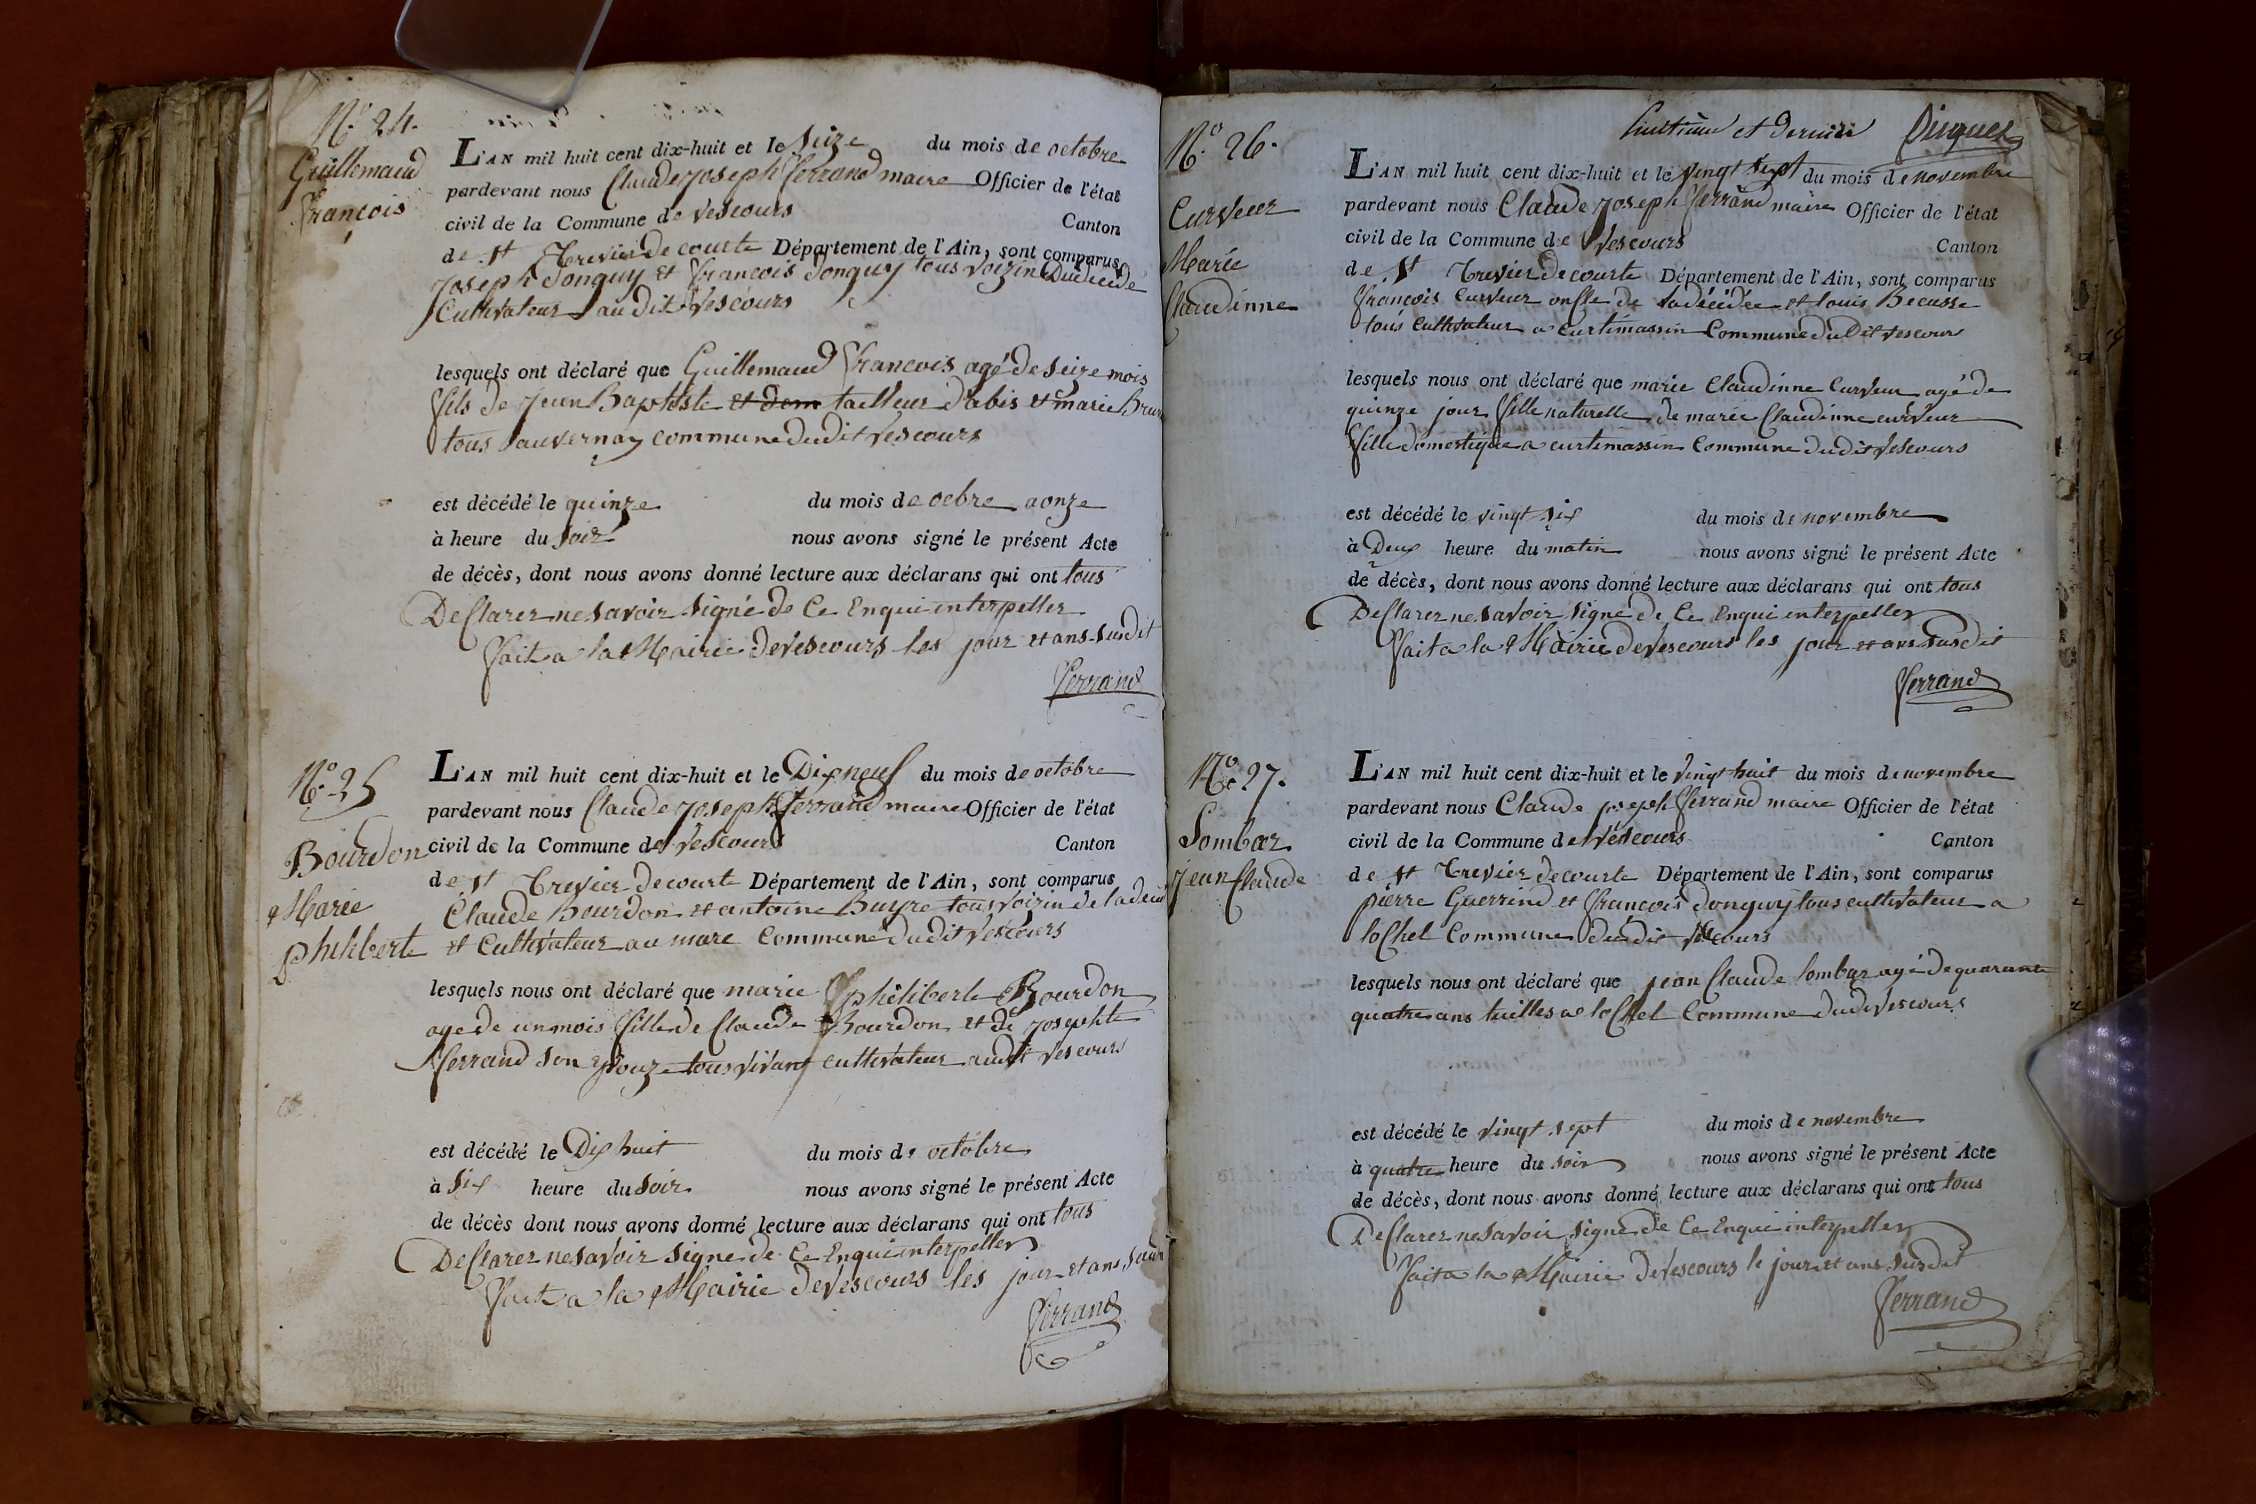 N.° 24.
Guillemaud
François
L'AN mil huit cent dix-huit et le seize du mois de octobre
pardevant nous Claude Joseph ferrand maire Officier de l'état
civil de la Commune de Vescours Canton
de St Trevier de courte Département de l'Ain, sont comparus
Joseph Donguy et francois Donguy tous voizin Dudecedé
Cultivateur au dit Vescours
lesquels ont déclaré que Guillemaud francois agé de seize mois
fils de Jean Baptiste et dem tailleur d'abis et marie Brun
tous au vernay commune dudit Vescours
est décédé le quinze du mois de oebre a onze
à heure du soir nous avons signé le présent Acte
de décès, dont nous avons donné lecture aux déclarans qui ont tous
Declarer ne savoir signé de Ce Enqui interpeller
fait a la Mairie de Vescours les jour et ans susdit
ferrand
N.° 25
Bourdon
Marie
philiberte
L'AN mil huit cent dix-huit et le Dix neuf du mois de octobre
pardevant nous Claude Joseph ferrand maire Officier de l'état
civil de la Commune de Vescours Canton
de St Trevier de courte Département de l'Ain, sont comparus
Claude Bourdon et antoine Buyre tous voizin de la
et Cultivateur au mare Commune dudit Vescours
lesquels nous ont déclaré que marie philiberte Bourdon
age de un mois fille de Claude Bourdon et de Josephte
ferrand son epouze tous vivant cultivateur audit Vescours
est décédé le Dix huit du mois de octobre
à six heure du soir nous avons signé le présent Acte
de décès dont nous avons donné lecture aux déclarans qui ont tous
Declarer ne savoir signe de Ce Enqui interpeller
fait a la Mairie de Vescours les jour et ans
ferrand
huitieme et derniere
N.° 26.
Curveur
Marie
Claudinne
L'AN mil huit cent dix-huit et le vingt sept du mois de novembre
pardevant nous Claude Joseph ferrand maire Officier de l'état
civil de la Commune de Vescours Canton
de St Trevier de courte Département de l'Ain, sont comparus
francois Curveur oncle de la décédée et louis Becusse
tous Cultivateur a curtimassin Commune du Dit vescour
lesquels nous ont déclaré que marie Claudinne Curveur agé de
quinze jour fille naturelle de marie Claudinne curveur
fille domestique a curtimassin Commune dudit Vescours
est décédé le vingt six du mois de novembre
à Deux heure du matin nous avons signé le présent Acte
de décès, dont nous avons donné lecture aux déclarans qui ont tous
Declarer ne savoir signé de Ce Enqui interpeller
fait a la Mairie de Vescours les jour et ans susdit
ferrand
N.° 27.
Lombar
jean Claude
L'AN mil huit cent dix-huit et le vingt huit du mois de novembre
pardevant nous Claude joseph ferrand maire Officier de l'état
civil de la Commune de Vescours Canton
de St Trevier de courte Département de l'Ain, sont comparus
pierre Guerrind et francois Donguy tous cultivateur a
lochet Commune dudit Vescours
lesquels nous ont déclaré que jean Claude lombar agé de quarante
quatre ans a lochet Commune dudi vescours
est décédé le vingt sept du mois de novembre
à quatre heure du soir nous avons signé le présent Acte
de décès, dont nous avons donné lecture aux déclarans qui ont tous
Declarer ne savoir signé de Ce Enqui interpeller
fait a la Mairie de Vescours le jour et ans susdit
ferrand